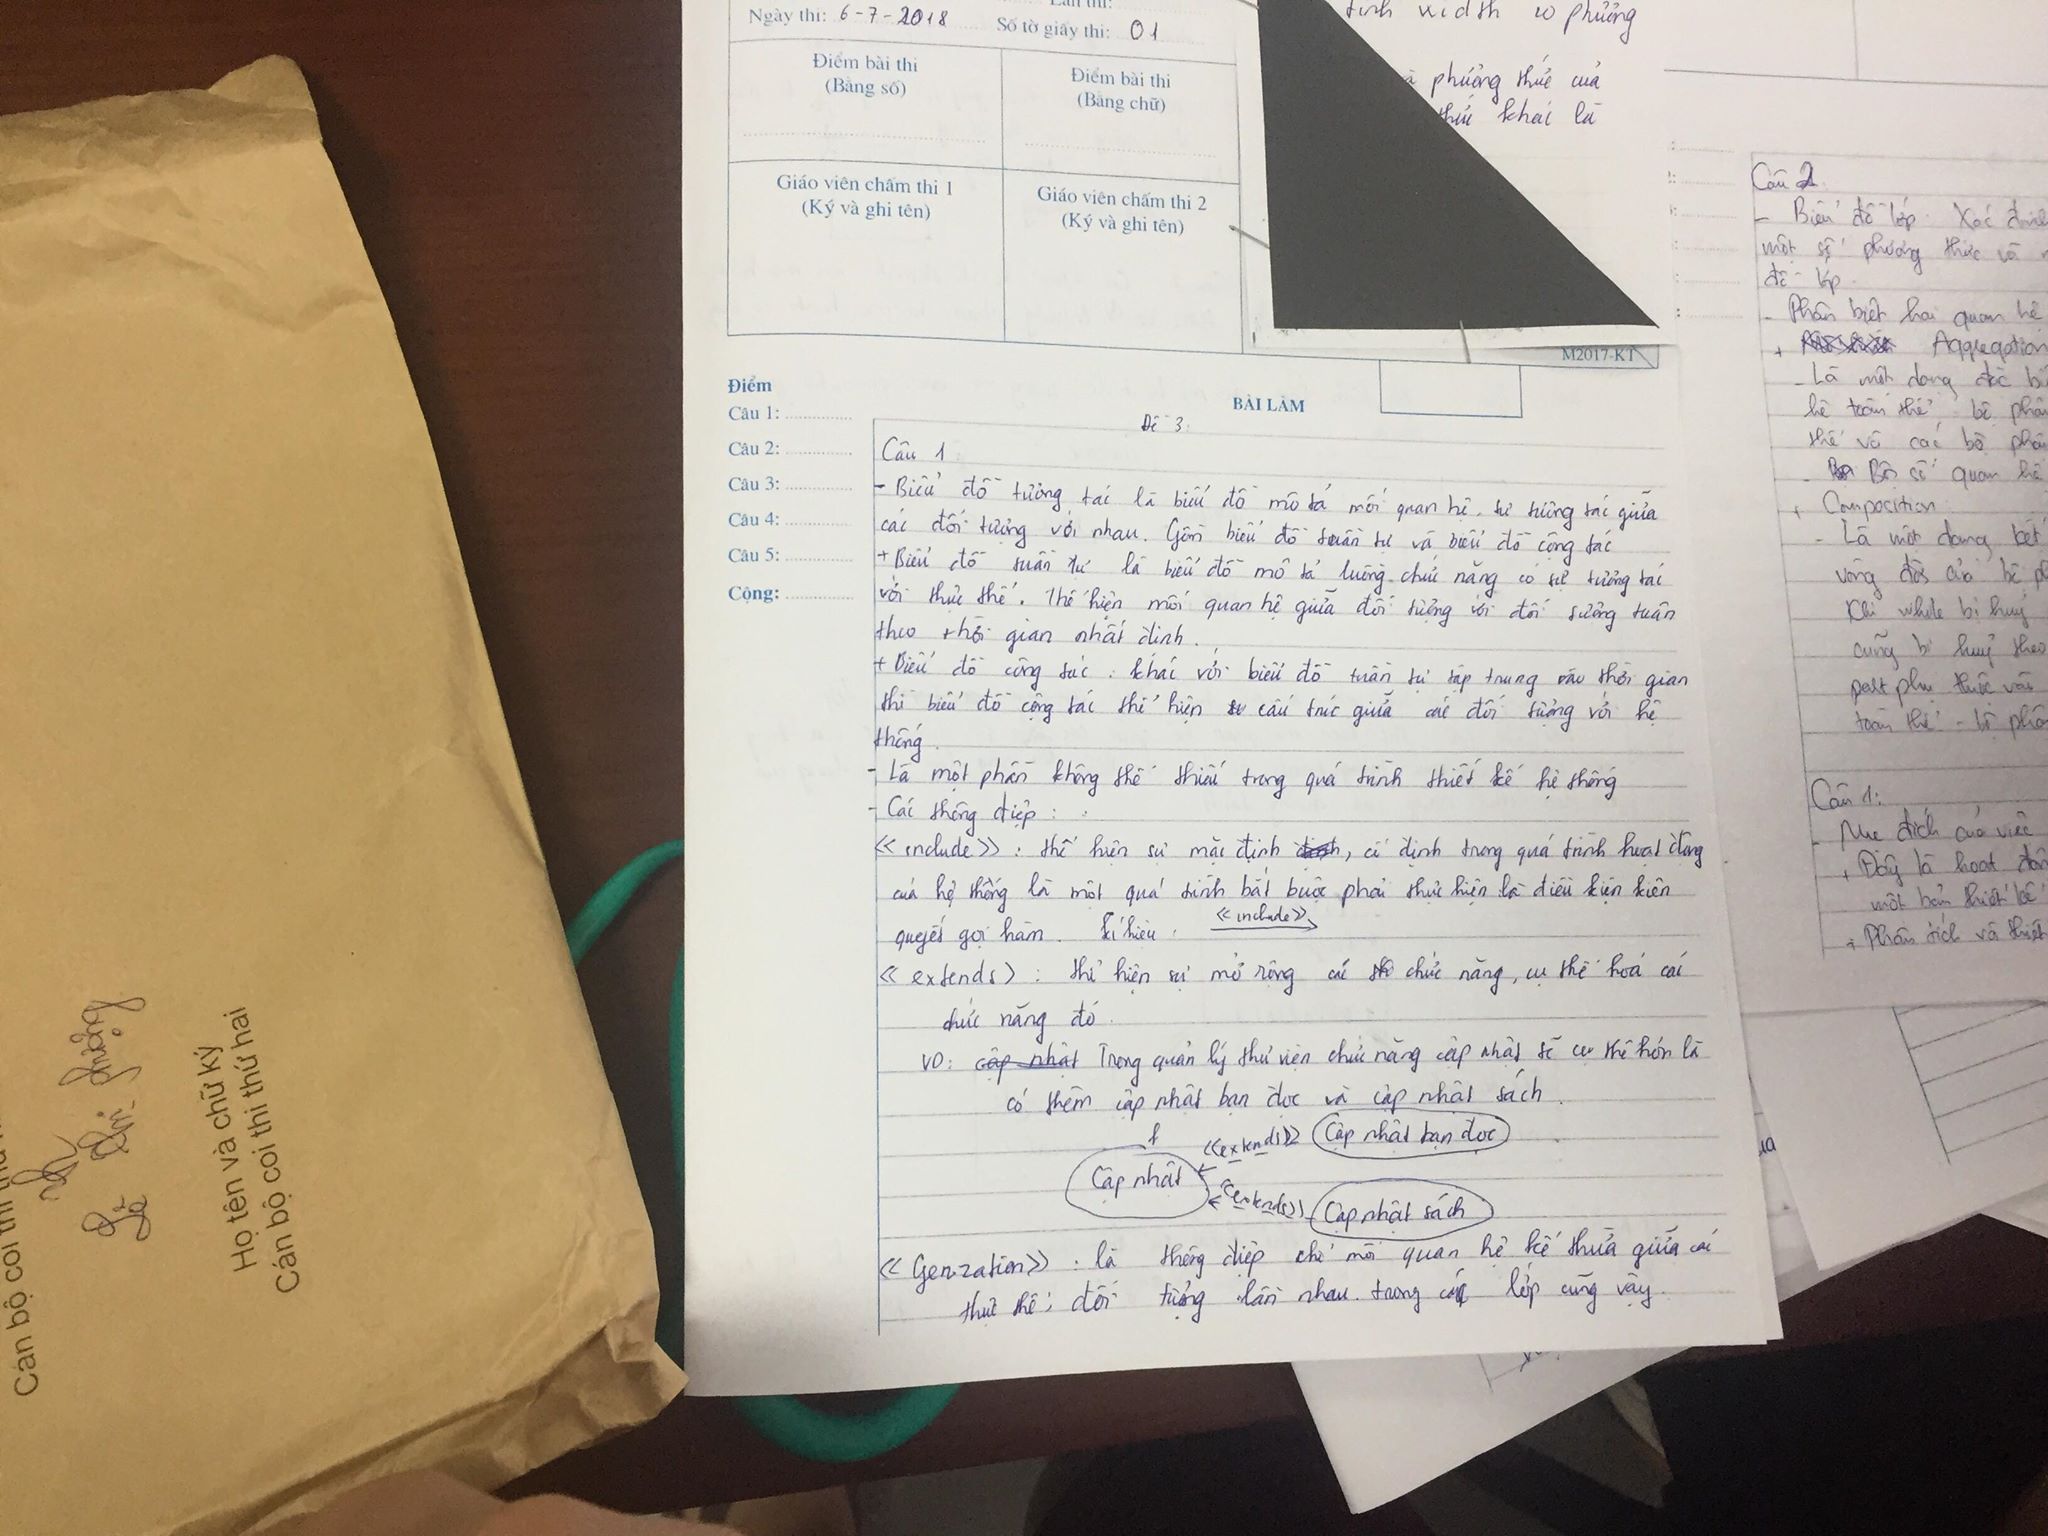 Lần thi:
Ngày thi: 6-7-2018 Số tờ giấy thi: 01
Điểm bài thi
(Bằng số)
Điểm bài thi
(Bằng chữ)
Giáo viên chấm thi 1
(Ký và ghi tên)
Giáo viên chấm thi 2
(Ký và ghi tên)
M2017-KT
Điểm
Câu 1:
Câu 2:
Câu 3:
Câu 4:
Câu 5:
Cộng:
BÀI LÀM
Đề 3:
Câu 1
- Biểu đồ tương tác là biểu đồ mô tả mối quan hệ, sự tương tác giữa
các đối tượng với nhau. Gồm biểu đồ tuần tự và biểu đồ cộng tác
+ Biểu đồ tuần tự là biểu đồ mô tả luồng chức năng có sự tương tác
với thực thể. Thể hiện mối quan hệ giữa đối tượng với đối tượng tuân
theo thời gian nhất định.
+ Biểu đồ cộng tác: khác với biểu đồ tuần tự tập trung vào thời gian
thì biểu đồ cộng tác thể hiện cấu trúc giữa các đối tượng với hệ
thống.
- Là một phần không thể thiếu trong quá trình thiết kế hệ thống
- Các thông điệp:
<<include>>: thể hiện sự mặc định, cố định trong quá trình hoạt động
của hệ thống là một quá trình bắt buộc phải thực hiện là điều kiện kiên
quyết gọi hàm. Kí hiệu: <<include>>
<<extends>: thể hiện sự mở rộng các chức năng, cụ thể hoá các
chức năng đó.
VD: cập nhật Trong quản lý thư viện chức năng cập nhật sẽ cụ thể hơn là
có thêm cập nhật bạn đọc và cập nhật sách.
<<extends>> Cập nhật bạn đọc
Cập nhật
<<extends>> Cập nhật sách
<<Genzation>>: là thông điệp chỉ mối quan hệ kế thừa giữa các
thực thể, đối tượng lẫn nhau. trong các lớp cũng vậy.
tính width 10 phương
phương thức của
thức khai là
Câu 2.
- Biểu đồ lớp: Xác định
một số phương thức và
đồ lớp.
- Phân biệt hai quan hệ
+ Aggregation
- Là một dạng đặc bi
hệ toàn thể - bộ phận
thể và các bộ phận
- Bản số quan hệ
+ Composition
- Là một dạng
vòng đời của
Khi whole bị huỷ
cũng bị huỷ theo
part phụ thuộc vào
toàn thể - bộ phận
Câu 1:
- Mục đích của việc
+ Đây là hoạt độn
một bản thiết kế
+ Phân tích và thiết
Họ tên và chữ ký
Cán bộ coi thi thứ hai
Cán bộ coi thi